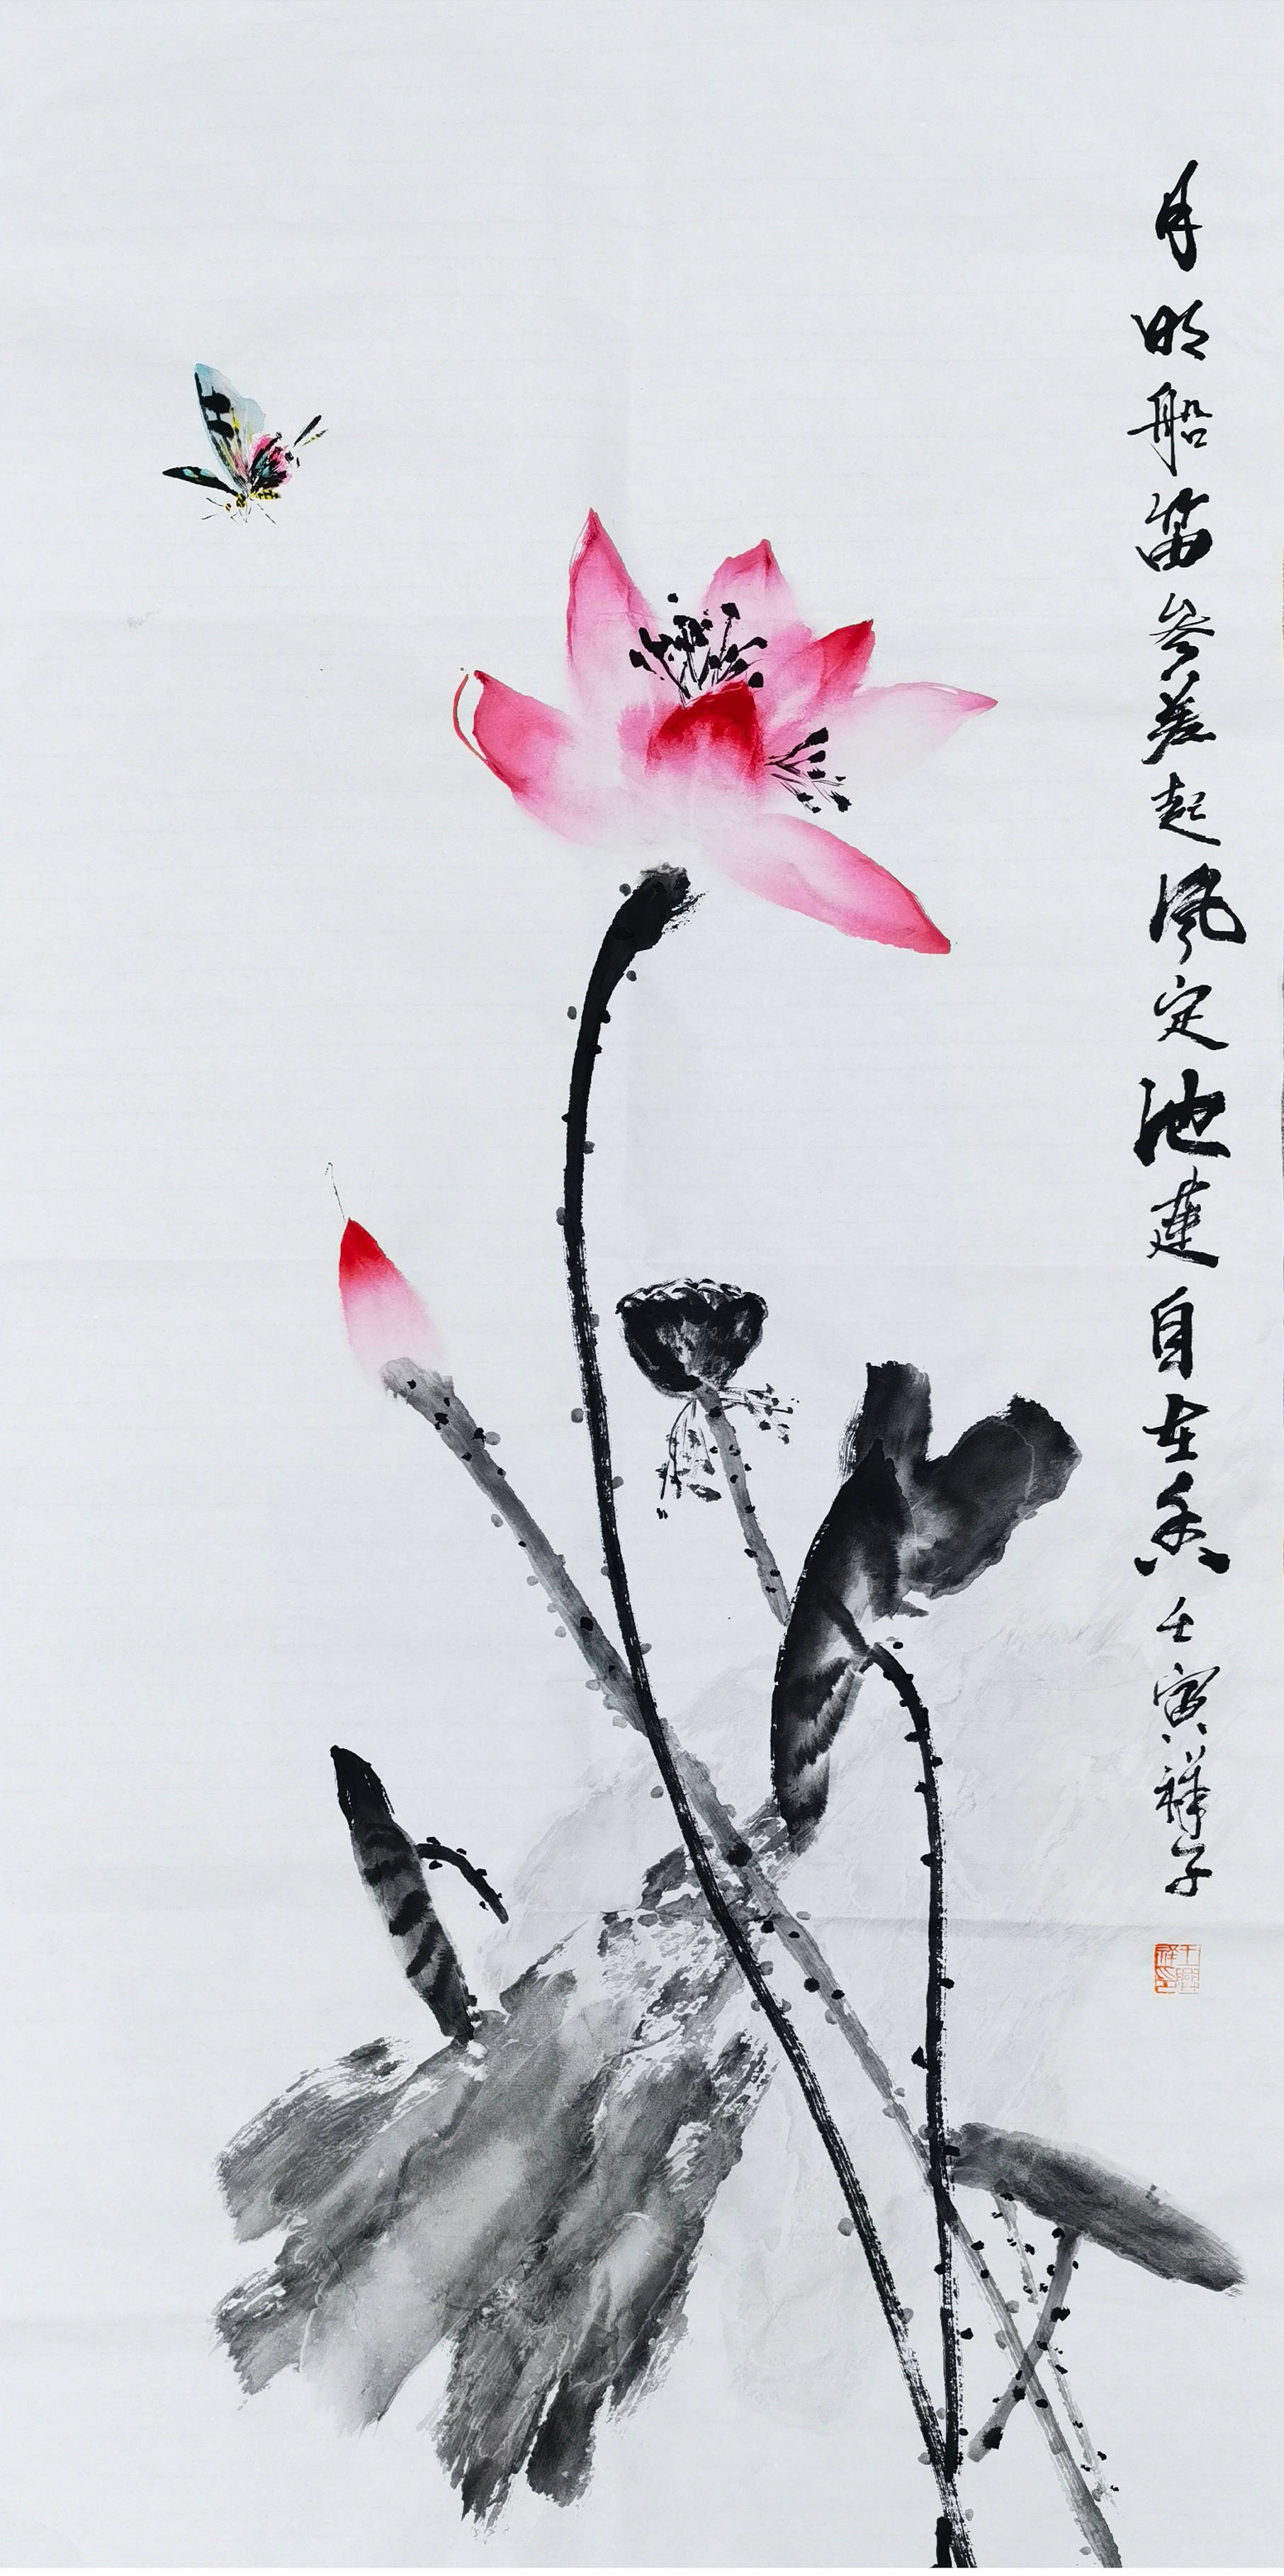 月明船笛参差起风定池莲自在香壬寅祥子